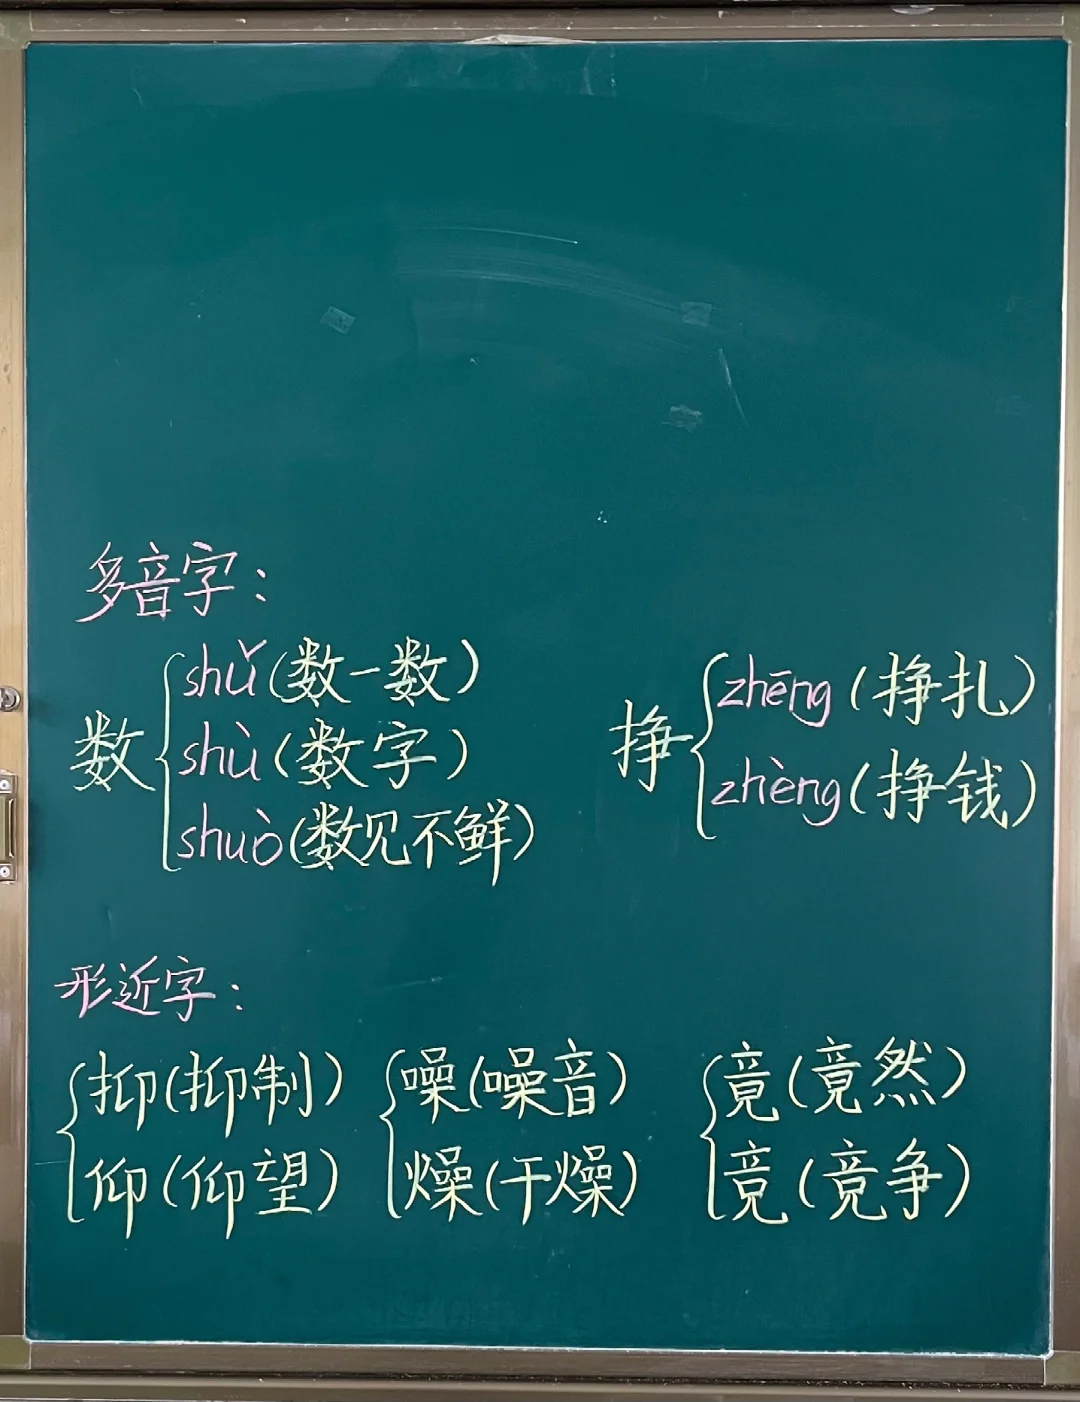 多音字：
数 shǔ(数一数)
shù(数字)
shuò(数见不鲜)
挣 zhēng(挣扎)
zhèng(挣钱)
形近字：
抑(抑制) 噪(噪音) 竟(竟然)
仰(仰望) 燥(干燥) 竟(竟争)